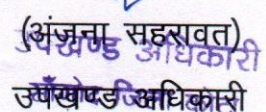 (अंजना सहरावत)
उपखण्ड अधिकारी
उपखण्ड अधिकारी